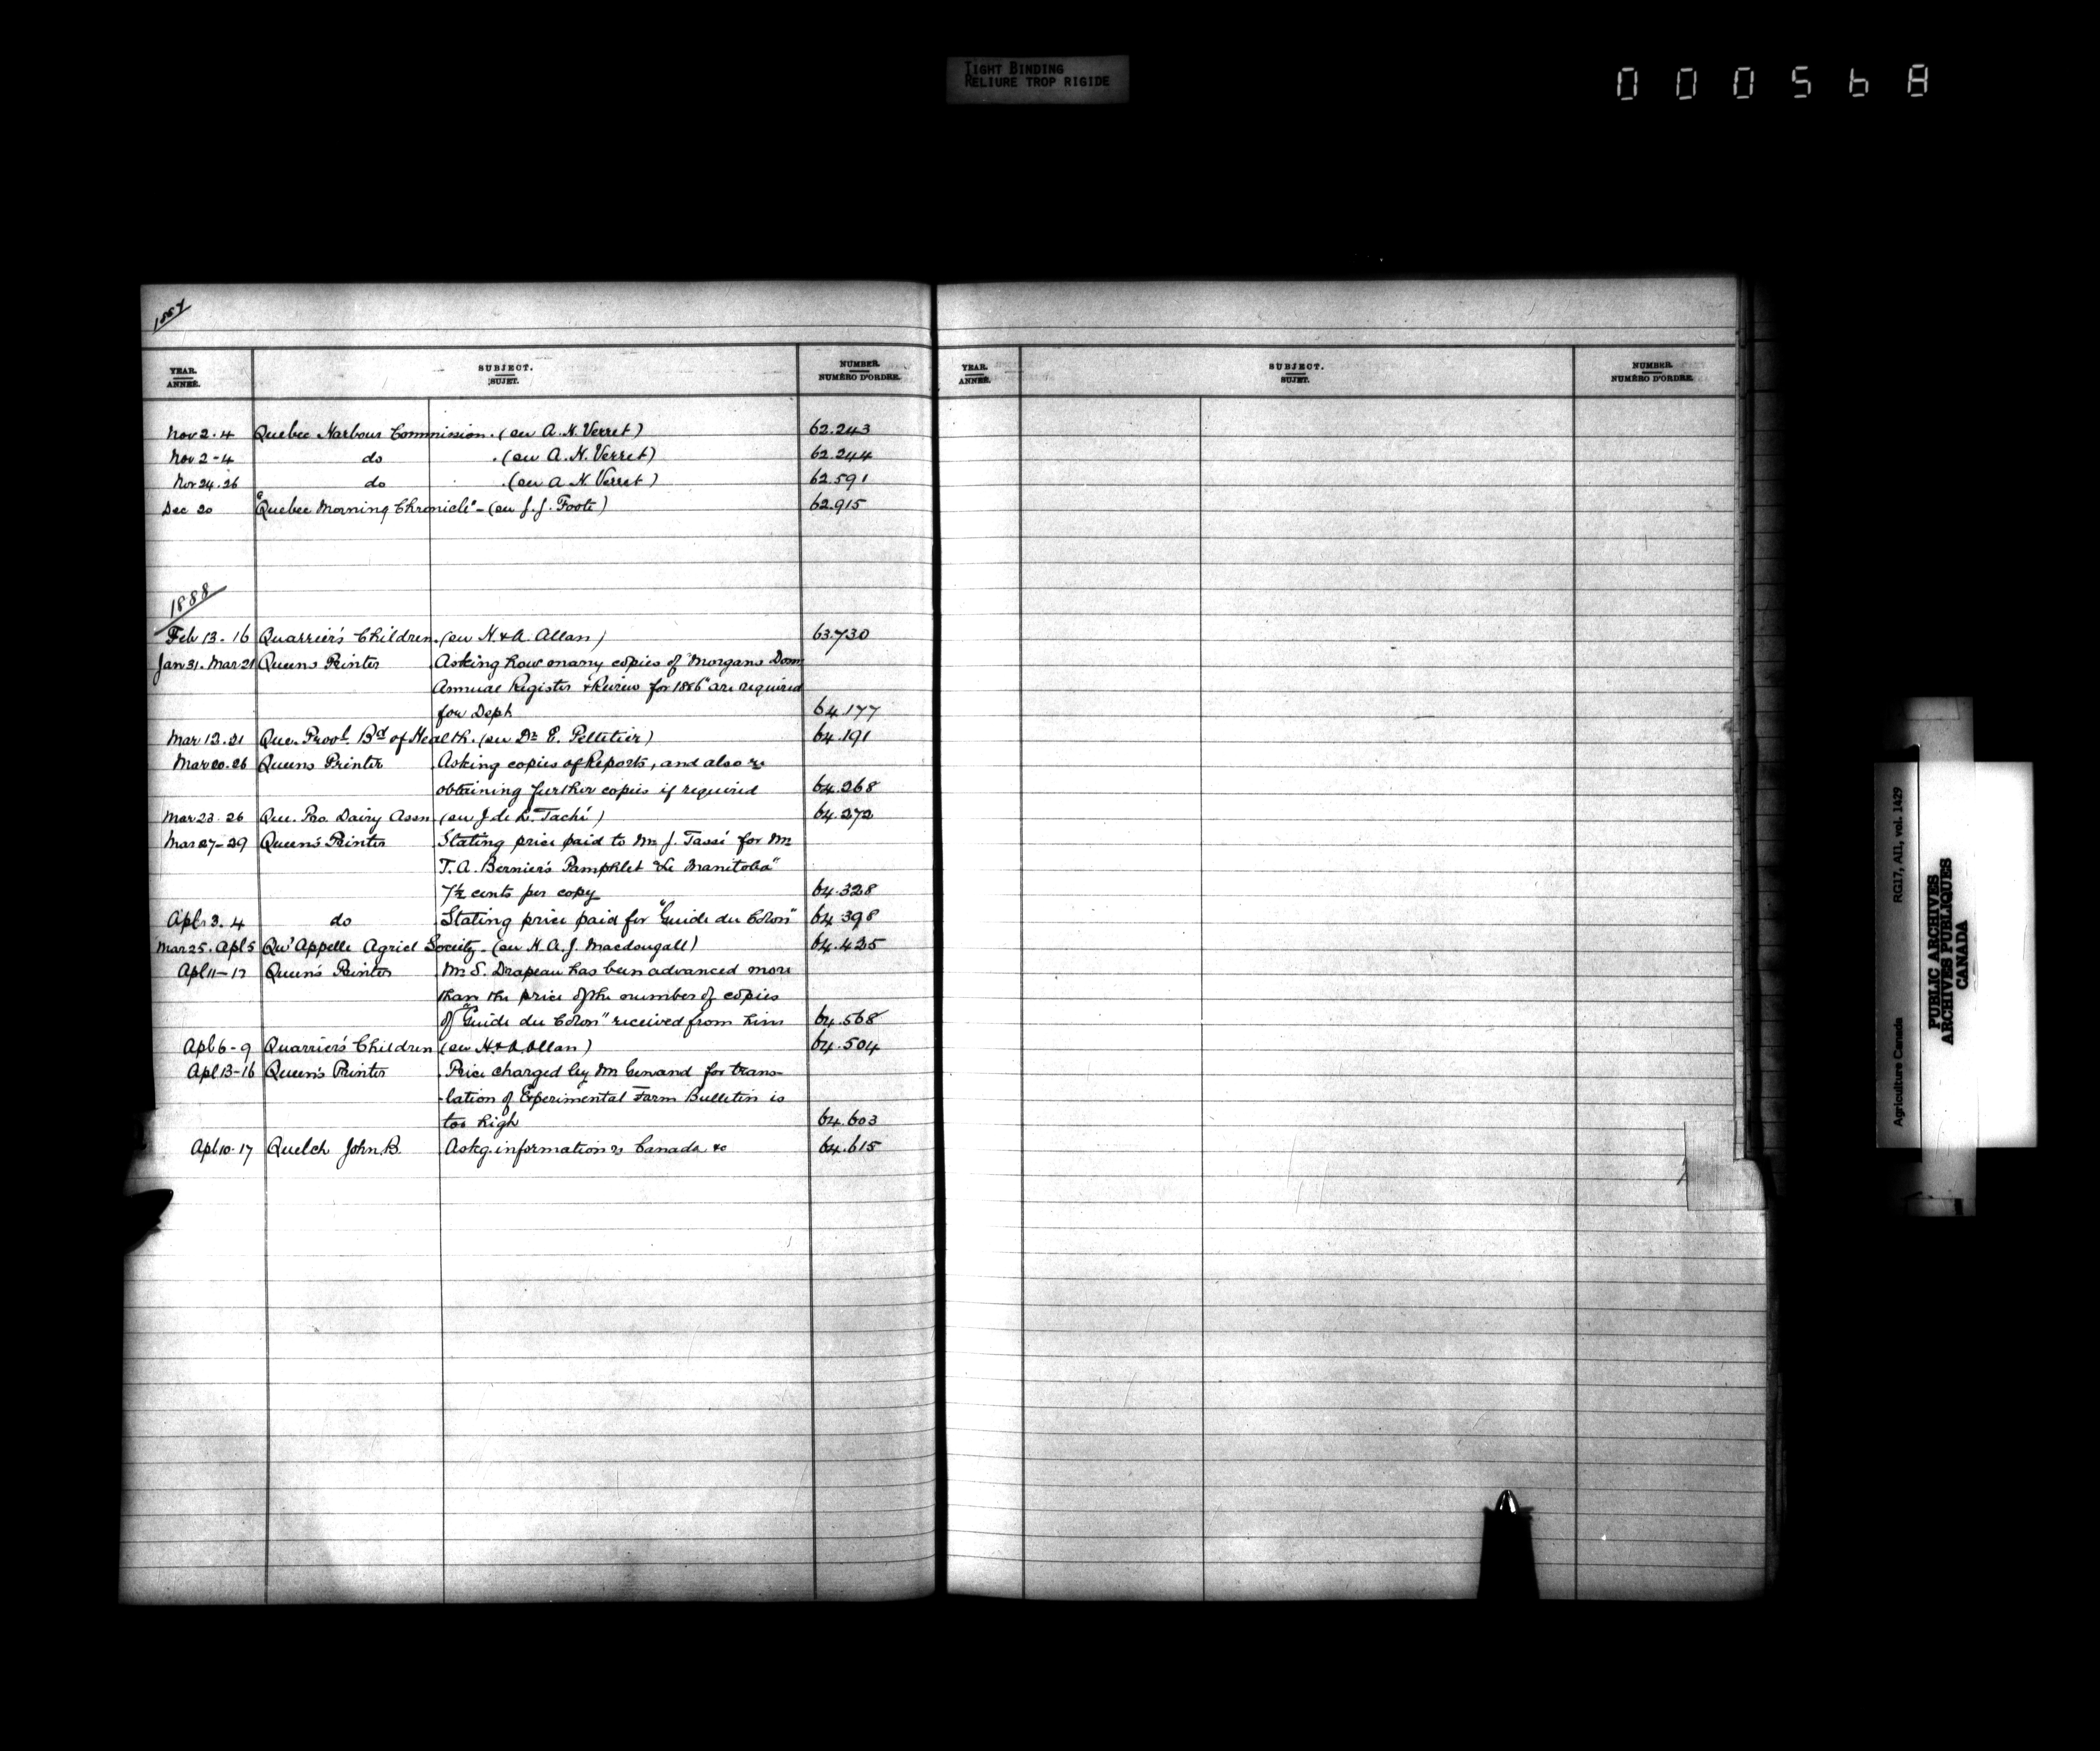 TIGHT BINDING
RELIURE TROP RIGIDE
000568
1887
YEAR. SUBJECT. NUMBER.
ANNÉE. SUJET. NUMÉRO D'ORDRE.
YEAR. SUBJECT. NUMBER.
ANNÉE. SUJET. NUMÉRO D'ORDRE.
Nov 2-4 Quebec Harbour Commission. (See A. H. Verret) 62.243
Nov 2-4 do . (See A. H. Verret) 62.244
Nov 24.26 do . (See A H Verret) 62.591
Dec 20 "Quebec Morning Chronicle" - (See J. J. Foote) 62.915
1888
Feb 13-16 Quarrier's Children. (See H. & A. Allan) 63.730
Jan 31. Mar 21 Queens Printer Asking how many copies of "Morgans Dom
Annual Register & Review for 1886" are required
for Dept 64.177
Mar 13.21 Que. Provl. Bd of Health. (See Dr E. Pelletier) 64.191
Mar 20.26 Queens Printer Asking copies of Reports, and also re
obtaining further copies if required 64.268
Mar 23.26 Que. Pro. Dairy Assn (See J. de L. Taché) 64.272
Mar 27-29 Queen's Printer Stating price paid to Mr J. Tassé for Mr
T. A. Bernier's Pamphlet "Le Manitoba"
7½ cents per copy 64.328
Apl 3.4 do Stating price paid for "Guide du Colon" 64.398
Mar 25. Apl 5 Qu'Appelle Agricl Society. (See H. A. J. Macdougall) 64.425
Apl 11-12 Queen's Printer Mr S. Drapeau has been advanced more
than the price of the number of copies
of "Guide du Colon" received from him 64.568
Apl 6-9 Quarrier's Children (See H. & A. Allan) 64.504
Apl 13-16 Queen's Printer Price charged by Mr Gerand for trans-
-lation of Experimental Farm Bulletin is
too high 64.603
Apl 10-17 Quelch John B. Askg. information re Canada &c 64.615
Agriculture Canada RG17, A11, vol. 1429
PUBLIC ARCHIVES
ARCHIVES PUBLIQUES
CANADA